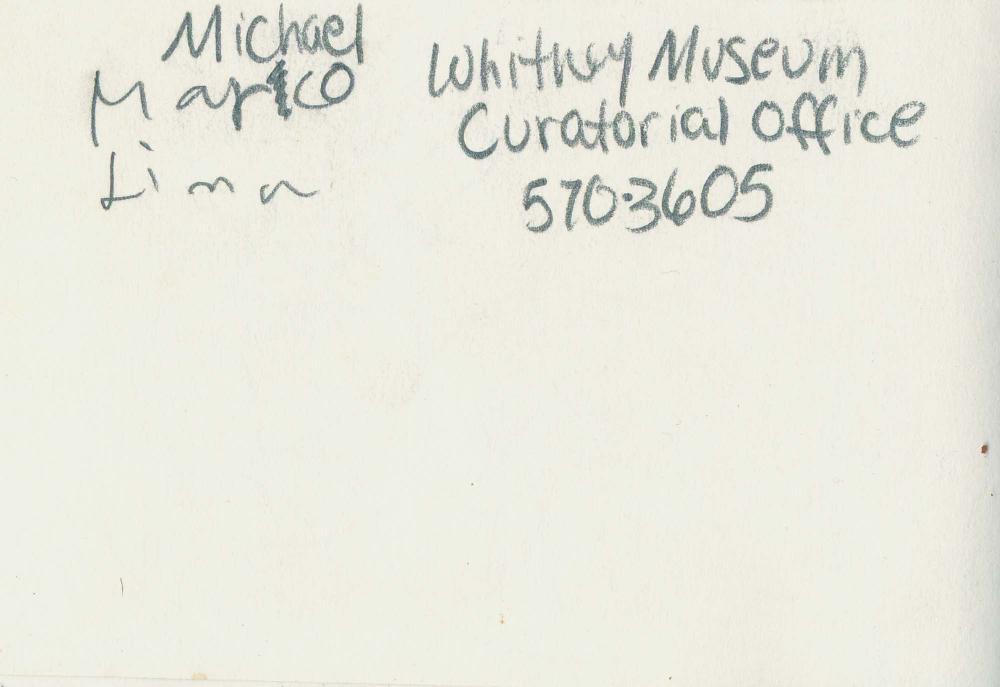 Michael
Marico
Lima
Whitney Museum
Curatorial Office
570·3605